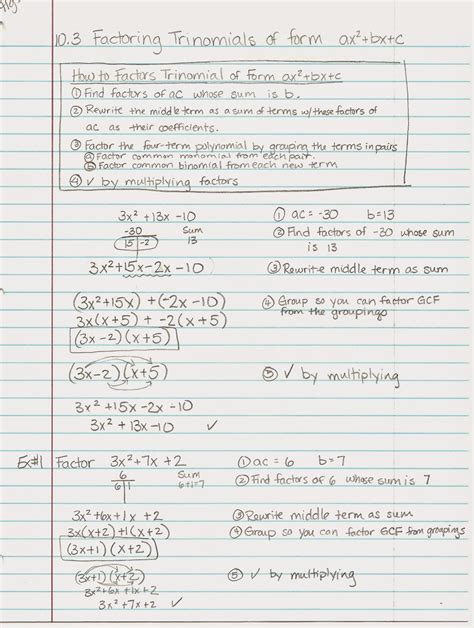 10.3 Factoring Trinomials of form ax²+bx+c
How to Factors Trinomial of form ax²+bx+c
① Find factors of ac whose sum is b.
② Rewrite the middle term as a sum of terms w/these factors of
ac as their coefficients.
③ Factor the four-term polynomial by grouping the terms in pairs
ⓐ Factor common monomial from each pair.
ⓑ Factor common binomial from each new term
④ ✓ by multiplying factors
3x² + 13x - 10 ① ac = -30 b = 13
-30 Sum ② Find factors of -30 whose sum
15 | -2 13 is 13
3x² + 15x - 2x - 10 ③ Rewrite middle term as sum
(3x² + 15x) + (-2x - 10) ④ Group so you can factor GCF
3x(x+5) + -2(x+5) from the groupings
(3x-2)(x+5)
(3x-2)(x+5) ⑤ ✓ by multiplying
3x² + 15x - 2x - 10
3x² + 13x - 10 ✓
Ex#1 Factor 3x² + 7x + 2 ① ac = 6 b = 7
6 Sum ② Find factors of 6 whose sum is 7
6 | 1 6+1=7
3x² + 6x + 1x + 2 ③ Rewrite middle term as sum
3x(x+2) + 1(x+2) ④ Group so you can factor GCF from groupings
(3x+1)(x+2)
(3x+1)(x+2) ⑤ ✓ by multiplying
3x² + 6x + 1x + 2
3x² + 7x + 2 ✓